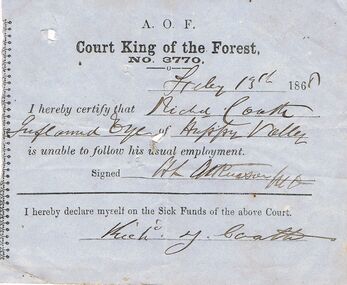 A. O. F.
Court King of the Forest,
No. 3770.
13th 186
I hereby certify that Richd Coath
Inflamed Eye of Happy Valley
is unable to follow his usual employment.
Signed Atkinson
I hereby declare myself on the Sick Funds of the above Court.
Richd Y. Coath